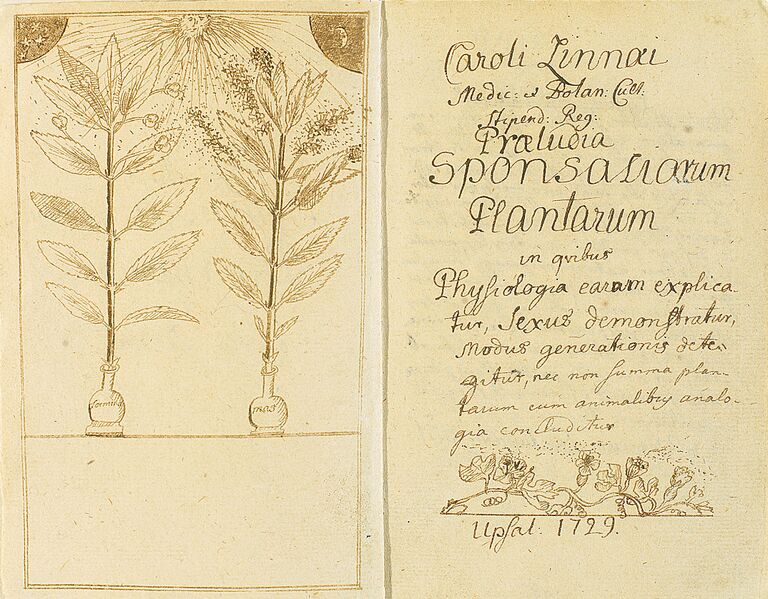 foemina
mas
Caroli Linnæi
Medic: et Botan: Cult.
Stipend: Reg:
Præludia
Sponsaliarum
Plantarum
in qvibus
Physiologia earum explica
tur, Sexus demonstratur,
Modus generationis dete-
gitur, nec non summa plan-
tarum cum animalibus analo-
gia concluditur
Upsal. 1729.